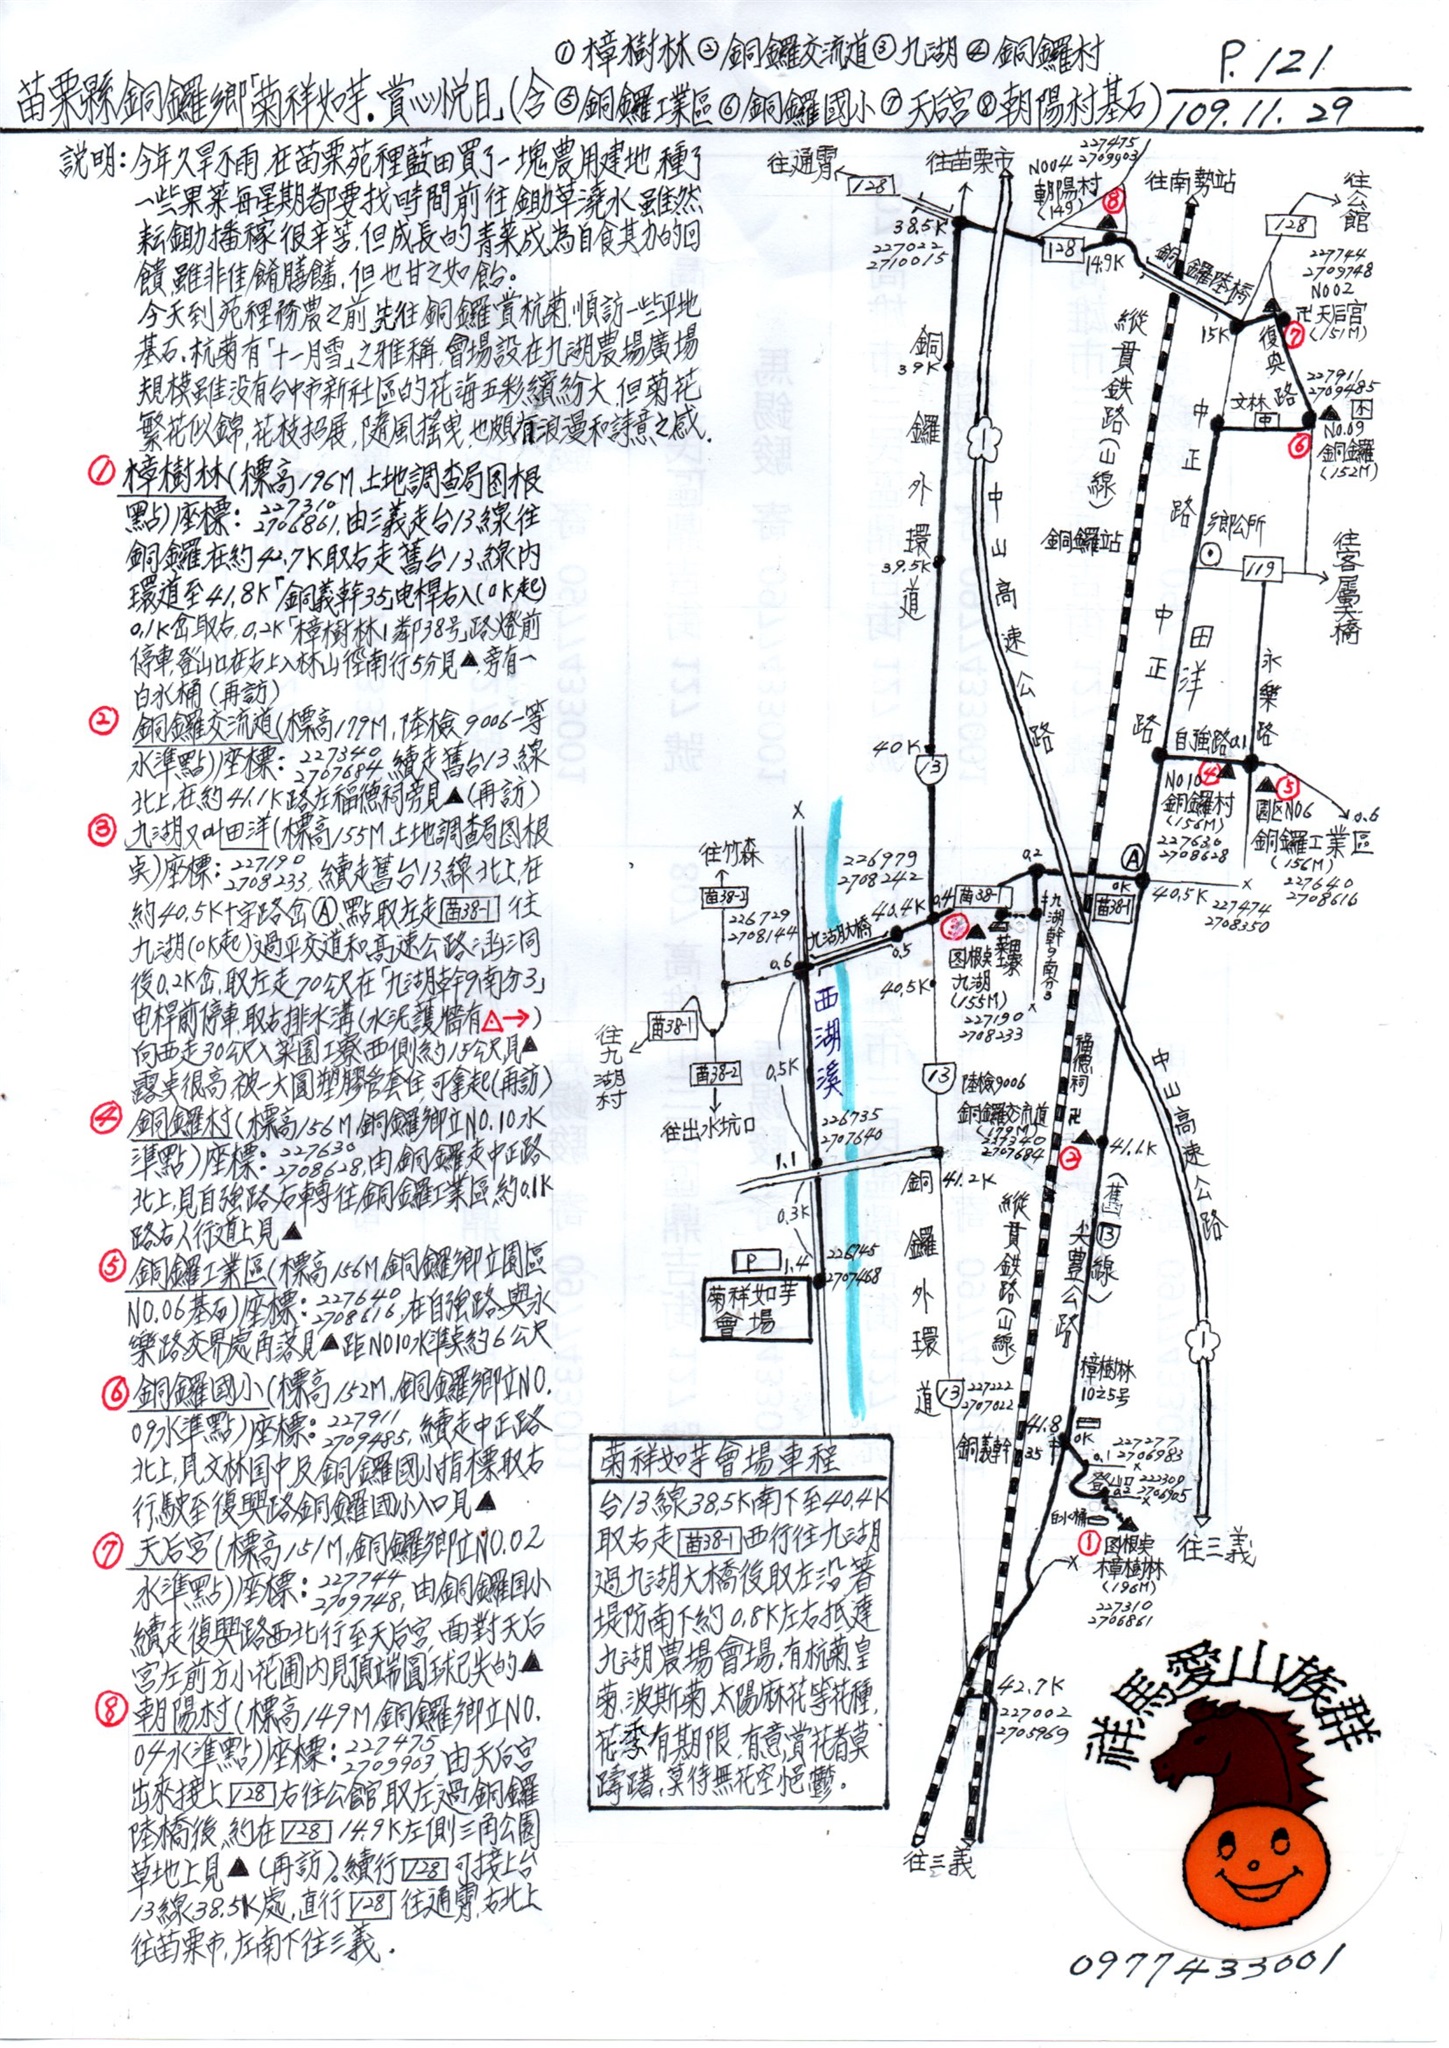 ①樟樹林②銅鑼交流道③九湖④銅鑼村
P.121
苗栗縣銅鑼鄉「菊祥如芋.賞心悅目」(含⑤銅鑼工業區⑥銅鑼國小⑦天后宮⑧朝陽村基石)
109.11.29
說明:今年久旱不雨,在苗栗苑裡藍田買了一塊農用建地,種了
一些果菜每星期都要找時間前往鋤草澆水,雖然
耘鋤播稼很辛苦,但成長的青菜成為自食其力的回
饋,雖非佳餚膳饈,但也甘之如飴。
今天到苑裡務農之前,先往銅鑼賞杭菊,順訪一些平地
基石.杭菊有「十一月雪」之雅稱,會場設在九湖農場廣場
規模雖沒有台中市新社區的花海五彩繽紛大,但菊花
繁花似錦,花枝招展,隨風搖曳,也頗有浪漫和詩意之感.
①樟樹林(標高196M,土地調查局圖根
點)座標:227310 2706861,由三義走台13線往
銅鑼在約42.7K取右走舊台13線內
環道至41.8K「銅義幹35」電桿右入(0K起)
0.1K岔取右,0.2K「樟樹林1鄰38号」路燈前
停車,登山口在右上入林山徑南行5分見▲,旁有一
白水桶(再訪)
②銅鑼交流道(標高179M,陸檢9006一等
水準點)座標:227340 2707684,續走舊台13線
北上,在約41.1K路左福德祠旁見▲(再訪)
③九湖又叫田洋(標高155M,土地調查局圖根
桌)座標:227190 2708233,續走舊台13線北上,在
約40.5K十字路岔Ⓐ點取左走苗38-1往
九湖(0K起)過平交道和高速公路涵洞
後0.2K岔,取左走70公尺在「九湖幹9南分3」
電桿前停車,取右排水溝(水泥護牆有△→)
向西走30公尺入菜園工寮西側約15公尺見▲
露桌很高,被一大圓塑膠管套住,可拿起(再訪)
④銅鑼村(標高156M,銅鑼鄉立NO.10水
準點)座標:227630 2708628,由銅鑼走中正路
北上,見自強路右轉往銅鑼工業區約0.1K
路右人行道上見▲
⑤銅鑼工業區(標高156M,銅鑼鄉立園區
NO.06基石)座標:227640 2708616,在自強路與永
樂路交界處角落見▲距NO10水準桌約6公尺
⑥銅鑼國小(標高152M,銅鑼鄉立NO.
09水準點)座標:227911 2709485,續走中正路
北上,見文林国中及銅鑼國小指標取右
行駛至復興路銅鑼國小入口見▲
⑦天后宮(標高151M,銅鑼鄉立NO.02
水準點)座標:227744 2709748,由銅鑼国小
續走復興路西北行至天后宮,面對天后
宮左前方小花圃內見頂端圓球已失的▲
⑧朝陽村(標高149M,銅鑼鄉立NO.
04水準點)座標:227475 2709903,由天后宮
出來接上128右往公館,取左過銅鑼
陸橋後,約在128 14.9K左側三角公園
草地上見▲(再訪),續行128可接上台
13線38.5K處,直行128往通霄,右北上
往苗栗市,左南下往三義.
往通霄
128
往苗栗市
227475
2709903
NO04
朝陽村
(149)
⑧
往南勢站
往公館
128
38.5K
227022
2710015
128
14.9K
銅鑼陸橋
15K
227744
2709748
NO02
卍天后宮
(151M)
⑦
復興路
227911
2709485
文林
中
小
NO.09
銅鑼
(152M)
⑥
銅鑼外環道
39K
39.5K
40K
13
中山高速公路
1
縱貫鉄路(山線)
銅鑼站
中正路
鄉公所
119
往客屬大橋
田洋
永樂路
中正路
自強路0.1
④
NO10
銅鑼村
(156M)
227630
2708628
⑤
園区NO6
銅鑼工業區
(156M)
227640
2708616
0.6
Ⓐ
0K
苗38-1
40.5K
227474
2708350
往竹森
苗38-2
226729
2708144
九湖大橋
0.6
0.5
226979
2708242
40.4K
0.4
苗38-1
0.2
九湖幹9南分3
菜寮
③
图根桌
九湖
(155M)
227190
2708233
40.5K
苗38-1
往九湖村
苗38-2
往出水坑口
西湖溪
0.5K
226735
2707640
1.1
0.3K
226745
2707468
1.4
P
菊祥如芋
會場
13
陸檢9006
銅鑼交流道
(179M)
227340
2707684
②
福德祠
卍
41.1K
41.2K
銅鑼外環道
縱貫鉄路(山線)
(舊13線)
尖豐公路
中山高速公路
1
13
227222
2707022
樟樹林
1025号
41.8
0K
銅義幹
35
227277
2706983
0.1
登山口
0.2
222309
2706905
白水桶
①
図根桌
樟樹林
(196M)
227310
2706861
往三義
42.7K
227002
2705969
往三義
菊祥如芋會場車程
台13線38.5K南下至40.4K
取右走苗38-1西行往九湖
過九湖大橋後取左沿著
堤防南下約0.8K左右抵達
九湖農場會場,有杭菊,皇
菊,波斯菊,太陽麻花等花種,
花季有期限,有意賞花者莫
躊躇,莫待無花空悒鬱。
祥馬愛山族群
0977433001